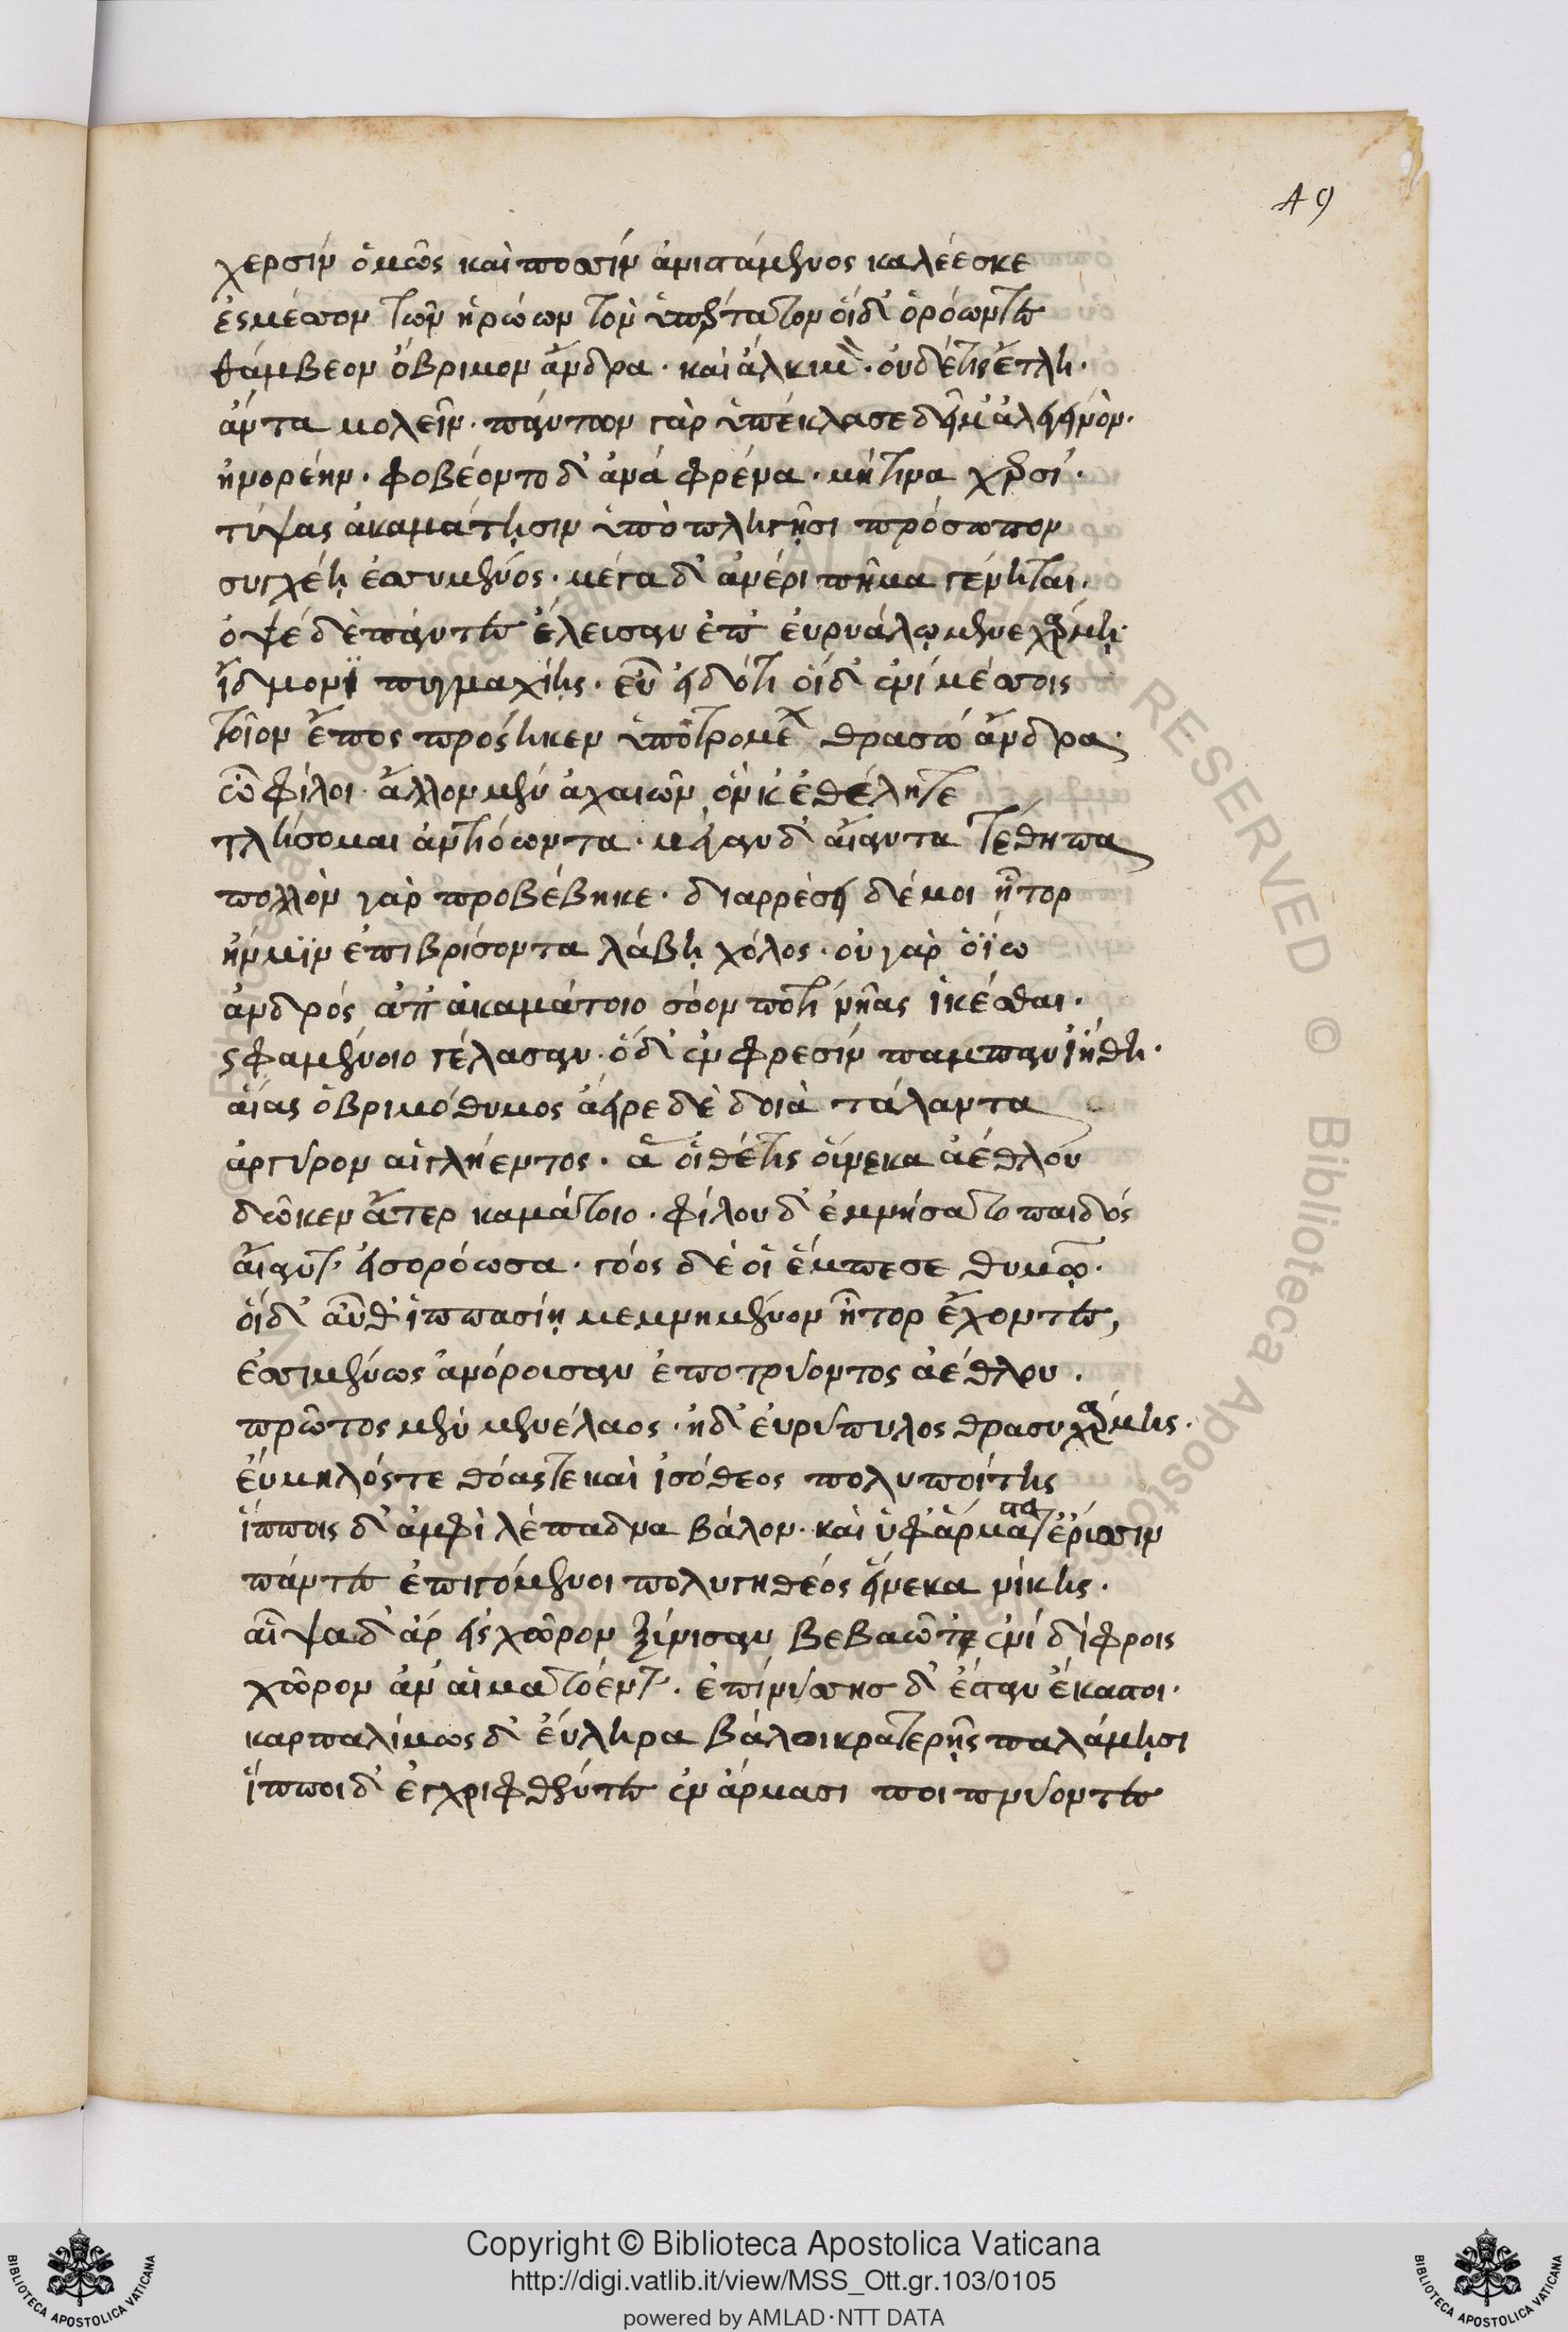 49
χερσὶν ὁμῶς καὶ ποσσὶν ἀνιστάμενος καλέεσκε
ἐς μέσσον τῶν ἡρώων τὸν ὑπέρτατον οἱ δ' ὁρόωντες
θάμβεον ὄβριμον ἄνδρα· καὶ ἄλκιμον· οὐδέ τις ἔτλη·
ἄντα μολεῖν· πάντων γὰρ ὑπέκλασε δεῖμ' ἀλεγεινὸν·
ἠνορέην· φοβέοντο δ' ἀνὰ φρένα· μή τινα χερσί·
τύψας ἀκαμάτῃσιν ὑπὸ πληγῇσι πρόσωπον
συγχέῃ ἐσσυμένος· μέγα δ' ἀνέρι πῆμα γένηται·
ὀψὲ δὲ πάντες ἔλεισαν ἐπ' εὐρυάλῳ μενεχάρμῃ·
ἴδμονι πυγμαχίης· εὖ εἰδότι οἱ δ' ἐνὶ μέσσοις
τοῖον ἔπος προσέηκεν ὑποτρομέων θρασὺ ἄνδρα·
ὦ φίλοι· ἄλλον μὲν ἀχαιῶν ὅν κ' ἐθέλητε
τλήσομαι ἀντιόωντα· μέγαν δ' αἴαντα τέθηπα
πολλὸν γὰρ προβέβηκε· διαρρέσει δέ μοι ἦτορ
ἤν μϊν ἐπιβρίσοντα λάβῃ χόλος· οὐ γὰρ ὀΐω
ἀνδρός ἀπ' ἀκαμάτοιο σόον ποτὶ νῆας ἱκέσθαι·
ς φαμένοιο γέλασαν· ὁ δ' ἐν φρεσὶν παμπαν ἰήθη·
αἴας ὀβριμόθυμος ἄειρε δὲ δοιὰ τάλαντα
ἀργύρου αἰγλήεντος· ἅ οἱ θέτις εἵνεκα ἀέθλου
δῶκεν ἄτερ καμάτοιο· φίλου δ' ἐμνήσατο παιδός
αἴαντ' εἰσορόωσα· γόος δέ οἱ ἔμπεσε θυμῷ·
οἱ δ' αὖθ' ἱππασίῃ μεμνημένον ἦτορ ἔχοντες,
ἐσσιμένως ἀνόρουσαν ἐποτρύνοντος ἀέθλου·
πρῶτος μὲν μενέλαος· ἠδ' εὐρύπυλος θρασυχάρμης·
εὔμηλός τε θόας τε καὶ ἰσόθεος πολυποίτης
ἵπποις δ' ἀμφὶ λέπαδνα βάλον· καὶ ὑφ' ἅρματ' ἔρυσσιν
πάντες ἐπιγόμενοι πολυγηθέος εἵνεκα νίκης·
αἶψα δ' ἄρ εἰς χῶρον ξύνισαν βεβαῶτε ἐνὶ δίφροις
χῶρον ἀν' αἱματόεντα· ἐπὶ νύσσησ δ' ἔσταν ἕκαστοι·
καρπαλίμως δ' εὔληρα βάλον κρατερῇς παλάμῃσι
ἵπποι δ' ἐγχριφθέντες ἐν ἅρμασι ποιπνύοντες
Copyright © Biblioteca Apostolica Vaticana
http://digi.vatlib.it/view/MSS_Ott.gr.103/0105
powered by AMLAD·NTT DATA
BIBLIOTECA APOSTOLICA VATICANA
BIBLIOTECA APOSTOLICA VATICANA